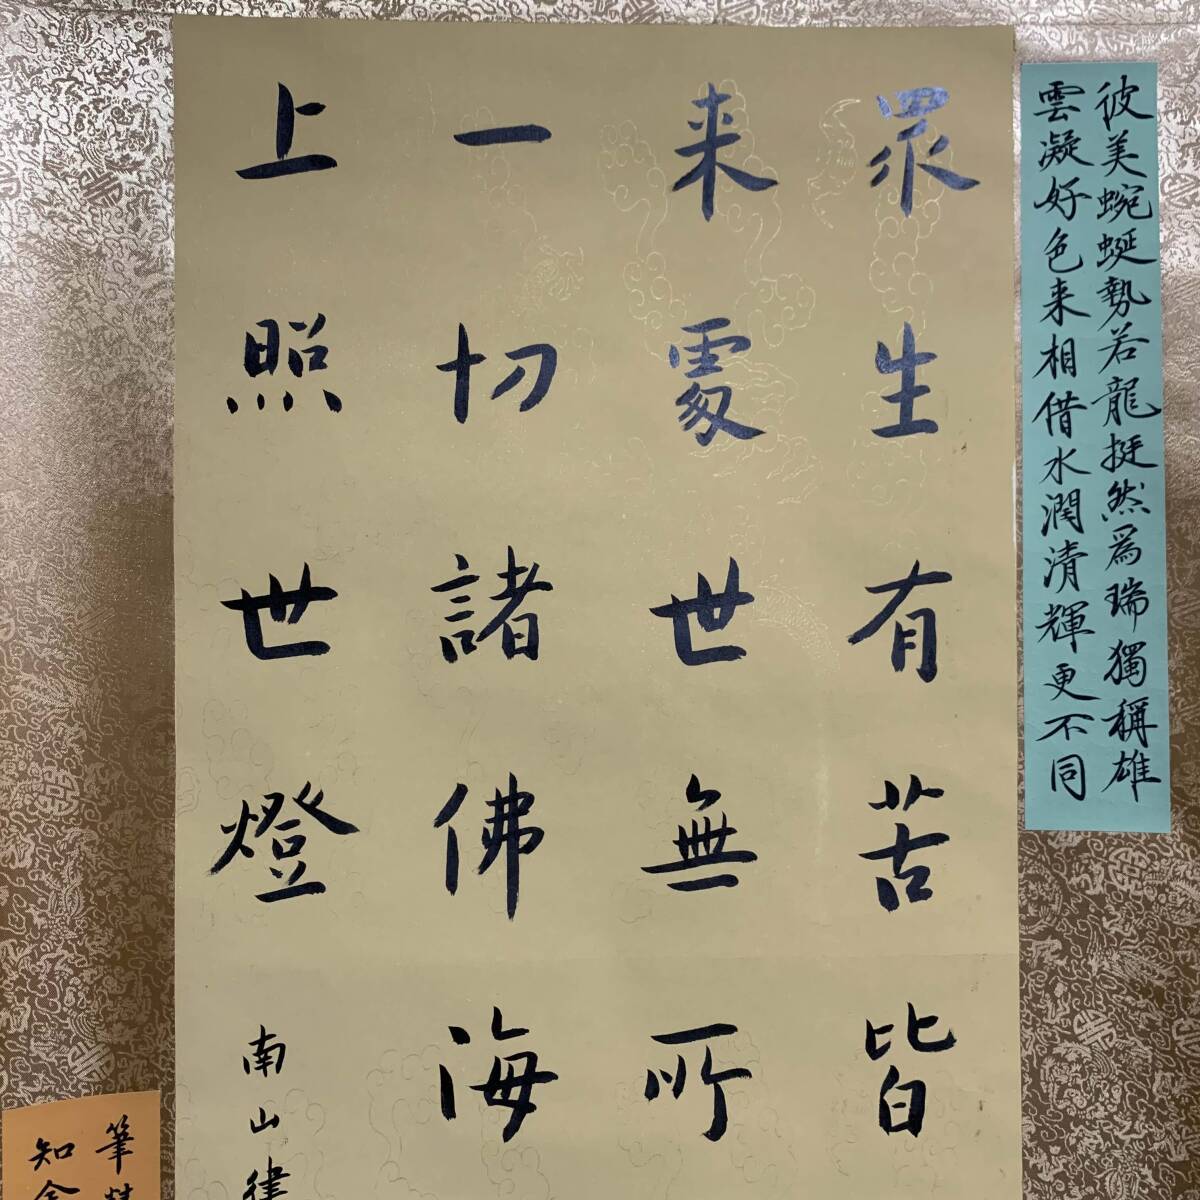 彼美蜿蜒勢若龍挺然為瑞獨稱雄
雲凝好色来相借水潤清輝更不同
眾生有苦皆
来處世無所
一切諸佛海
上照世燈
南山律
筆
知